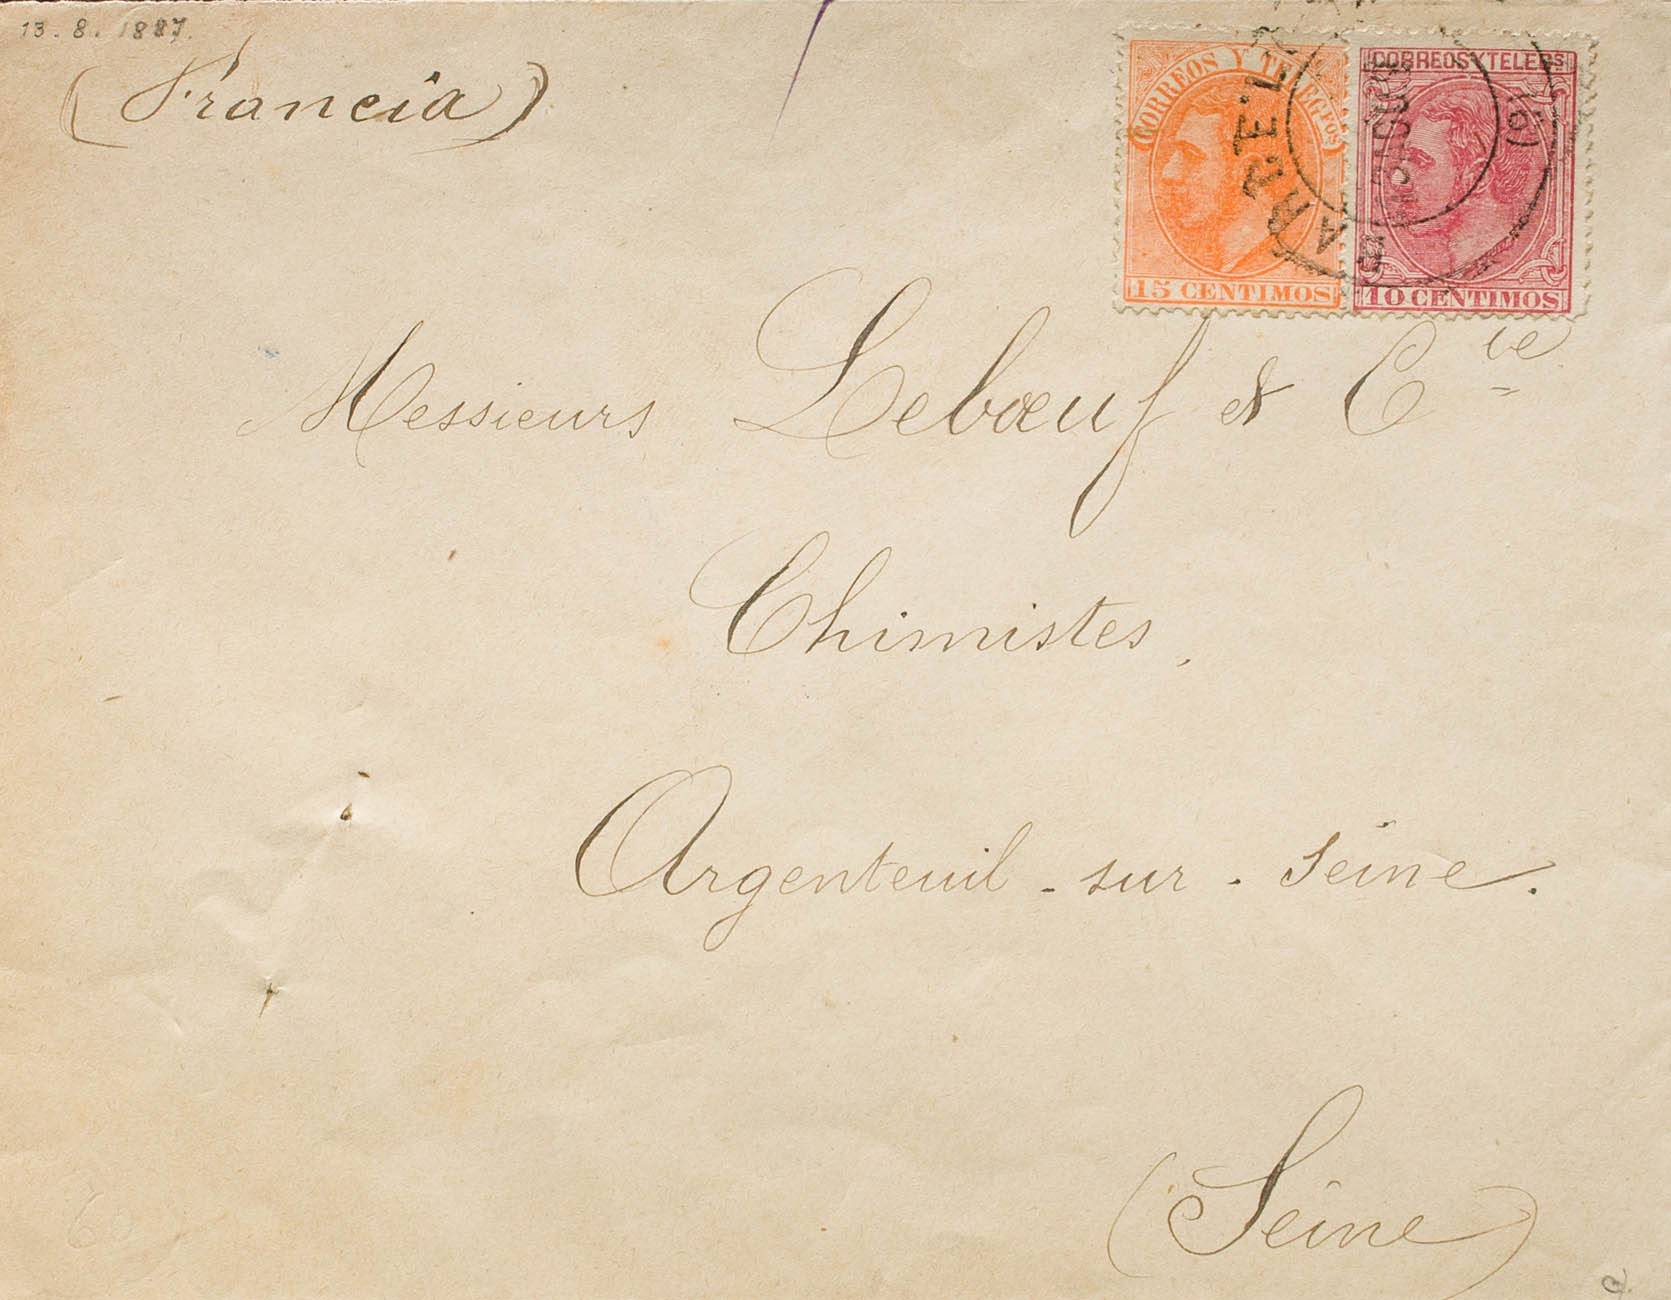 13.8.1887.
(Francia)
CORREOS Y TELEGFOS
15 CENTIMOS
CORREOS Y TELEGFS
10 CENTIMOS
Messieurs Lebœuf & Cie
Chimistes,
Argenteuil-sur-Seine.
(Seine)